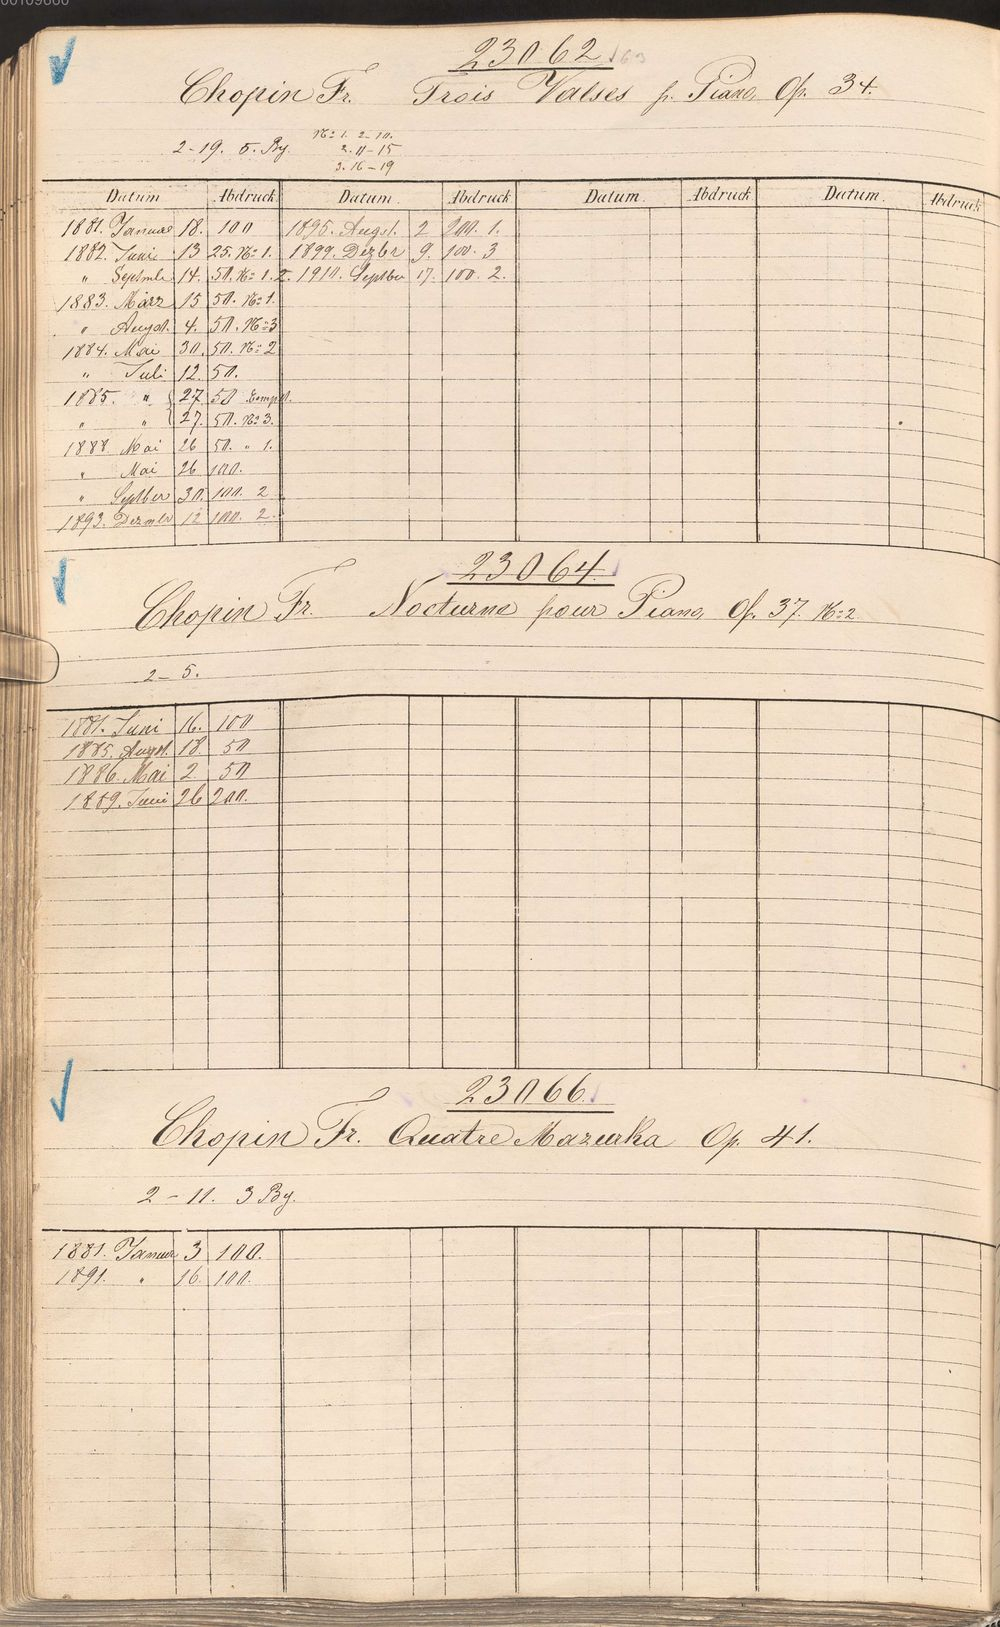 00109660
23062 63
Chopin Fr. Trois Valses p. Piano, Op. 34.
2-19. 5. Bg.
No 1. 2-10.
2. 11-15
3. 16-19
Datum Abdruck Datum. Abdruck Datum. Abdruck Datum. Abdruck
1881. Januar 18. 100 1895. Augst. 2 200. 1.
1882. Juni 13 25. No 1. 1899. Dezbr 9. 100. 3
" Septmbr 14. 50. No 1. 2. 1910. Septber 17. 100. 2.
1883. März 15 50. No 1.
" Augst. 4. 50. No 3
1884. Mai 30. 50. No 2
" Juli 12. 50.
1885. " 27 50 Compl.
" " 27. 50. No 3.
1888. Mai 26 50. " 1.
" Mai 26 100.
" Septber 30. 100. 2
1893. Dezmbr 12 100. 2.
23064.
Chopin Fr. Nocturne pour Piano, Op. 37. No 2
2-5.
1881. Juni 16. 100
1885. Augst. 18. 50
1886. Mai 2. 50
1889. Juni 26 200.
23066.
Chopin Fr. Quatre Mazurka Op. 41.
2-11. 3 Bg.
1881. Januar 3 100.
1891. " 16. 100.